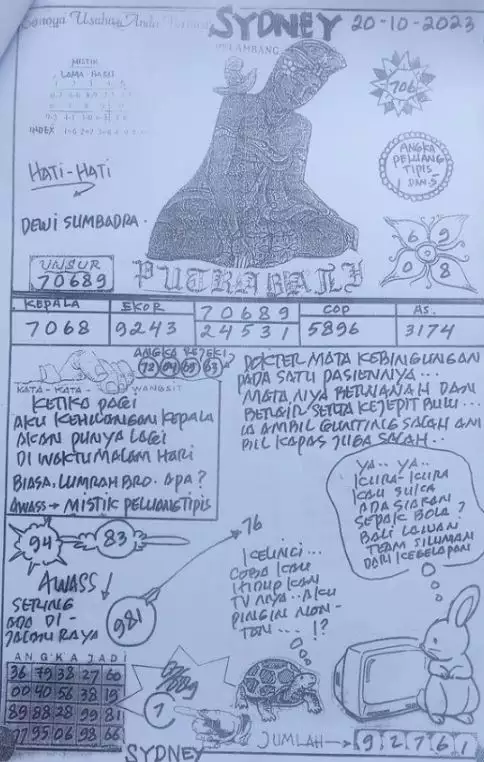 SYDNEY 20-10-2023
LAMBANG
MISTIK
LAMA - BARU
INDEX
706
HATI-HATI
ANGKA
PELUANG
TIPIS
1 DAN 5
DEWI SUMBADRA.
6 9
0 8
UNSUR
70689
PUTRA BALI
KEPALA EKOR 70689 COP AS.
7068 9243 24531 5896 3174
ANGKA REJEKI
72 04 65 63
KATA - KATA - WANGSIT
KETIKA PAGI
AKU KEHILANGAN KEPALA
AKAN PUNYA LAGI
DI WAKTU MALAM HARI
BIASA. LUMRAH BRO. APA?
AWASS → MISTIK PELUANG TIPIS
DOKTER MATA KEBINGUNGAN
PADA SATU PASIENNYA...
MATA NYA BERNANAH DAN
BERAIR SERTA KEJEPIT BULU...
IA AMBIL GUNTING SALAH AM
BIL KAPAS JUGA SALAH..
YA.. YA..
KURA-KURA
KAU SUKA
ADA SIARAN
SEPAK BOLA?
BALI LAWAN
TEAM SILUMAN
DARI KEGELAPAN
94 83
76
AWASS!
SERING
ADA DI-
JALAN RAYA
981
KELINCI...
COBA KAU
HIDUP KAN
TV NYA.. AKU
PINGIN NON-
TON... !?
ANGKA JADI
36 79 38 27 60
00 40 58 38 19
89 88 28 99 81
77 95 06 98 66
7
SYDNEY
JUMLAH → 9 2 7 6 1